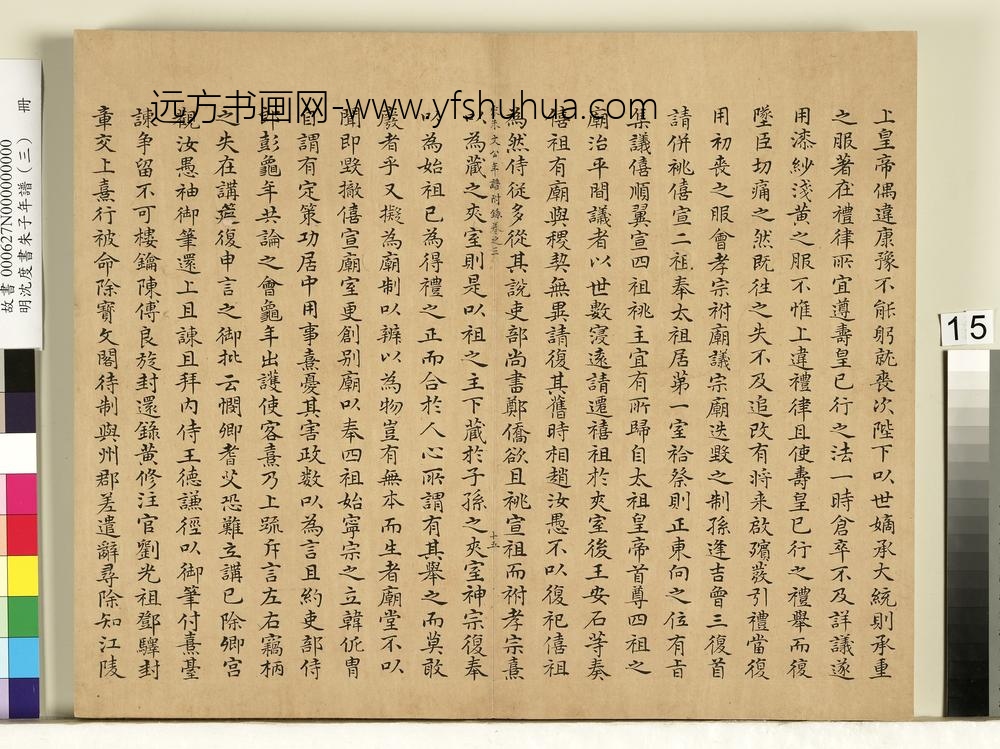 上皇帝偶違康豫不能躬就喪次陛下以世嫡承大統則承重
之服著在禮律所宜遵壽皇已行之法一時倉卒不及詳議遂
用漆紗淺黃之服不惟上違禮律且使壽皇已行之禮舉而復
墜臣切痛之然既往之失不及追改有將来啟殯發引禮當復
用初喪之服會孝宗祔廟議宗廟迭毀之制孫逢吉曾三復首
請併祧僖宣二祖奉太祖居第一室祫祭則正東向之位有旨
集議僖順翼宣四祖祧主宜有所歸自太祖皇帝首尊四祖之
廟治平間議者以世數寖遠請遷禧祖於夾室後王安石等奏
僖祖有廟與稷契無異請復其舊時相趙汝愚不以復祀僖祖
為然侍從多從其說吏部尚書鄭僑欲且祧宣祖而祔孝宗熹
朱文公年譜附錄卷之三
十五
以為藏之夾室則是以祖之主下藏於子孫之夾室神宗復奉
以為始祖已為得禮之正而合於人心所謂有其舉之而莫敢
廢者乎又擬為廟制以辨以為物豈有無本而生者廟堂不以
聞即毀撤僖宣廟室更創别廟以奉四祖始寧宗之立韓侂胄
自謂有定策功居中用事熹憂其害政數以為言且約吏部侍
郎彭龜年共論之會龜年出護使客熹乃上疏斥言左右竊柄
之失在講筵復申言之御批云憫卿耆艾恐難立講已除卿宮
觀汝愚袖御筆還上且諫且拜内侍王德謙徑以御筆付熹臺
諫争留不可樓鑰陳傅良旋封還錄黃修注官劉光祖鄧驛封
章交上熹行被命除寶文閣待制與州郡差遣辭尋除知江陵
远方书画网-www.yfshuhua.com
故書 000627N0000000000 冊
明沈度書朱子年譜（三）
15